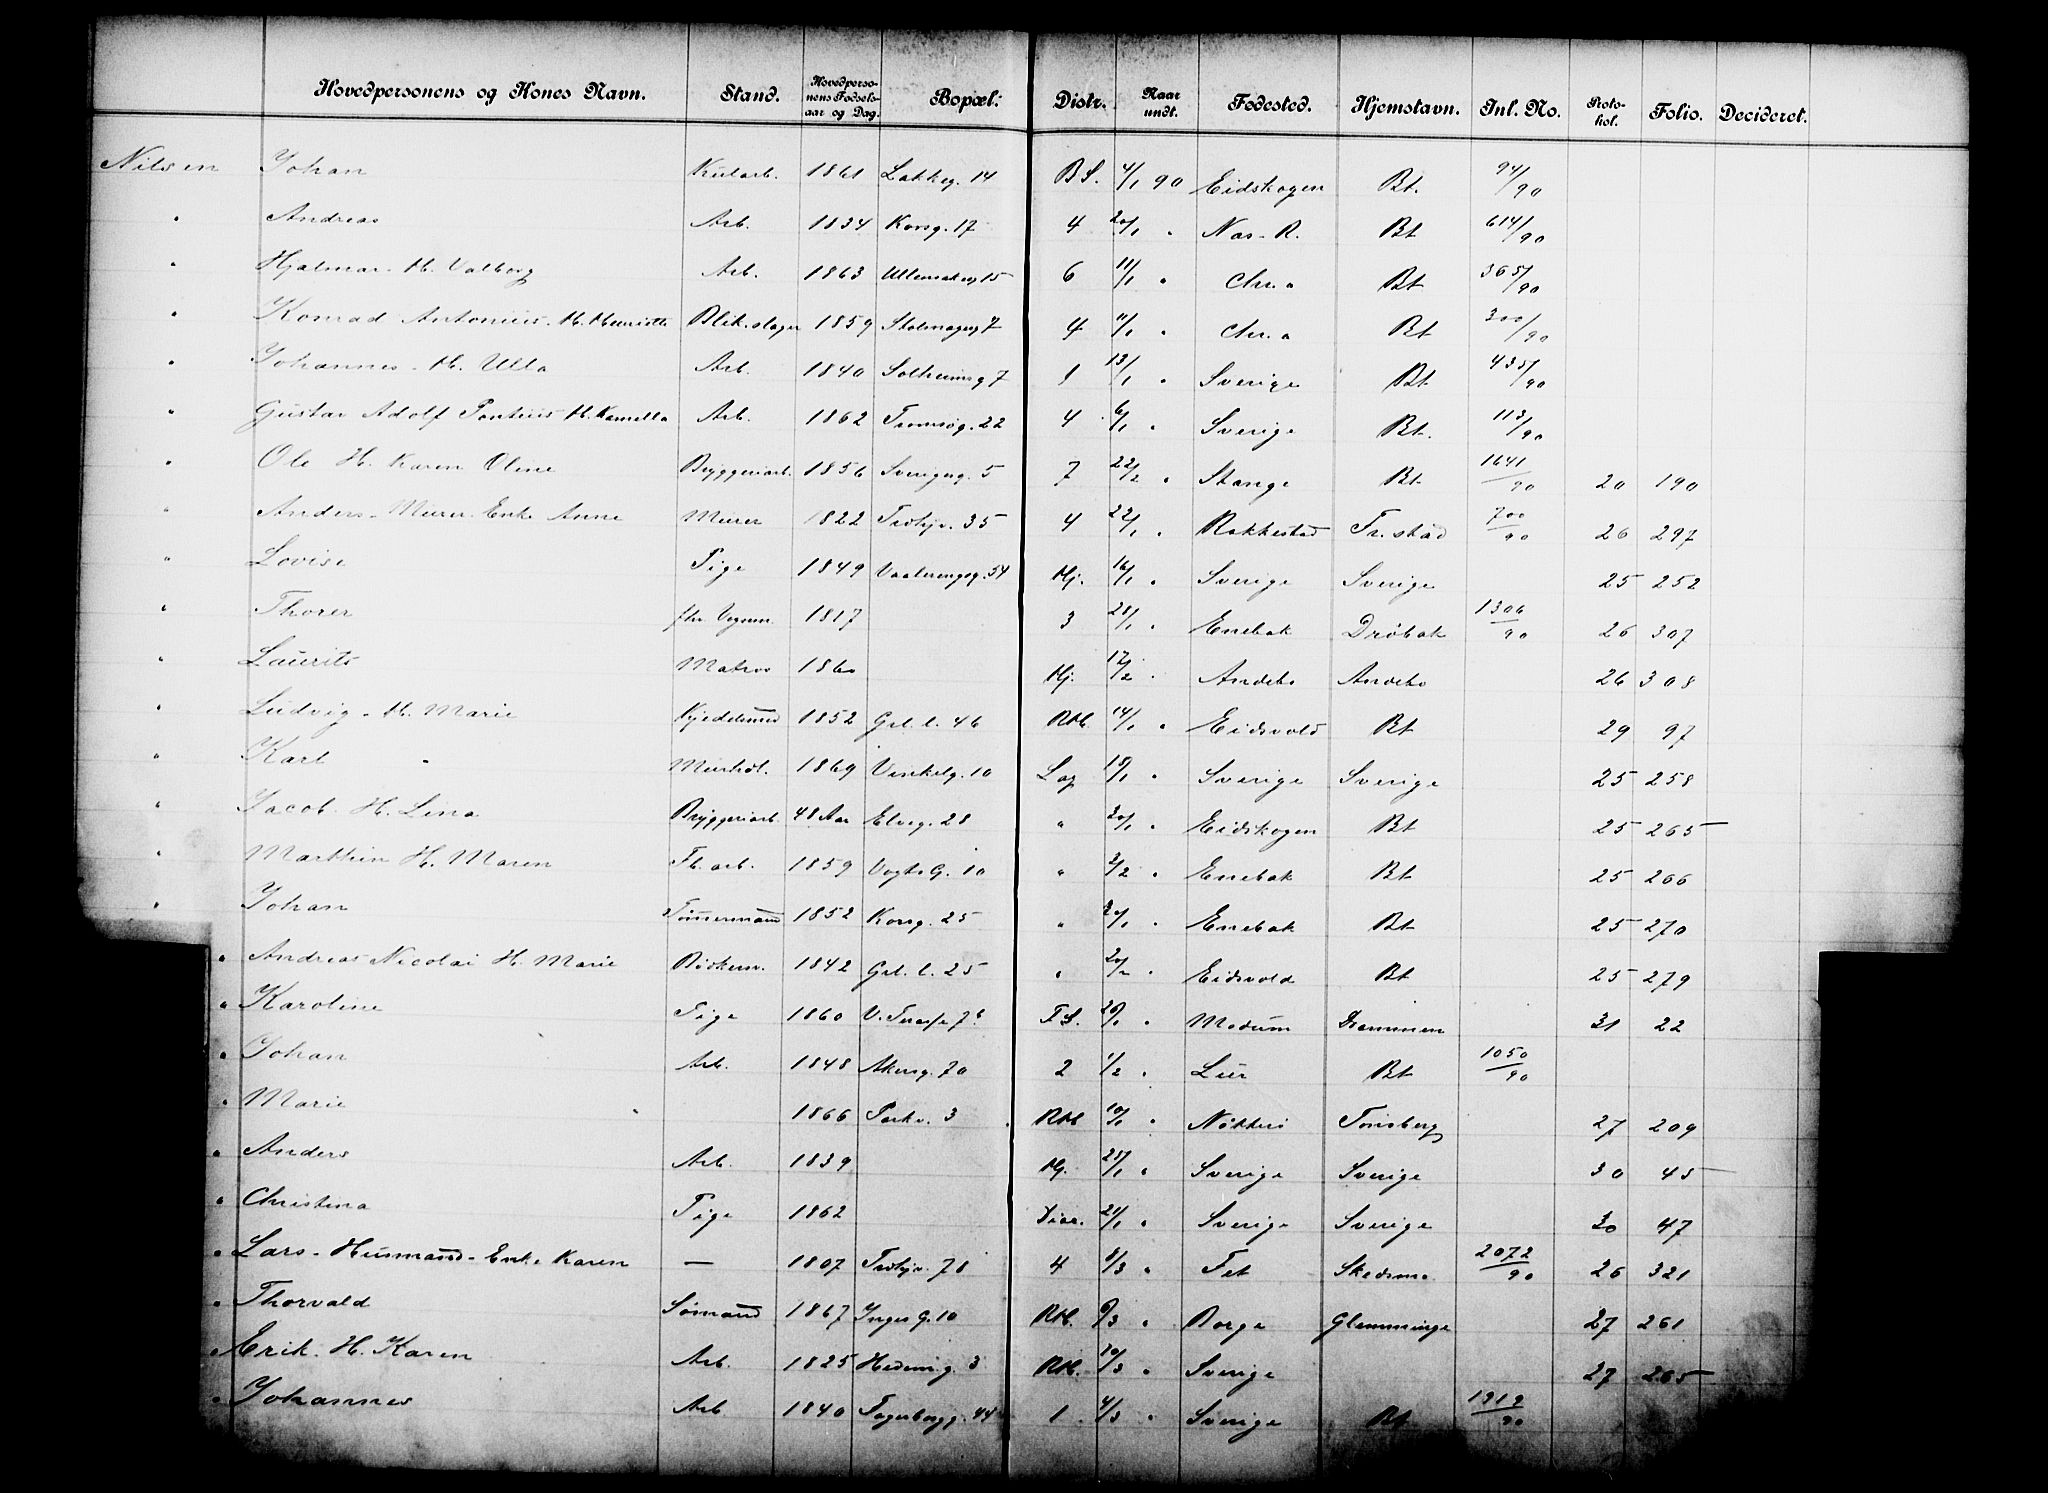 Hovedpersonens og Kones Navn. Stand. Hovedpersonens Fødselsaar og Dag. Bopæl. Distr. Naar undt. Fødested. Hjemstavn. Inl. No. Protokol. Folio. Decideret.
Nilsen Johan Kularb. 1861 Lakkeg. 14 BS. 4/1 90 Eidskogen Bt. 94/90
" Andreas Arb. 1834 Korsg. 17 4 20/1 " Næs R. Bt 614/90
" Hjalmar H. Valborg Arb. 1863 Ullensakerg 15 6 11/1 " Chr.a Bt 365/90
" Konrad Antonius H. Henriette Blikslager 1859 Stolmagerg 7 4 11/1 " Chr.a Bt 300/90
" Johannes H. Ulla Arb. 1840 Solheimsg 7 1 13/1 " Sverige Bt. 435/90
" Gustav Adolf Pontius H. Kamilla Arb. 1862 Tromsøg. 22 4 6/1 " Sverige Bt. 113/90
" Ole H. Karen Oline Bryggeriarb. 1856 Sverigesg. 5 7 22/2 " Stange Bt 1641/90 20 190
" Anders Murer Enke Anne Murer 1822 Trohjv. 35 4 22/1 " Rakkestad Fr.stad 700/90 26 297
" Lovise Pige 1849 Vaalerengsg. 54 Hj. 16/1 " Sverige Sverige 25 252
" Thorer fhv. Vognm. 1817 3 28/1 " Enebak Drøbak 1306/90 26 307
" Laurits Matros 1860 Hj. 12/2 " Andebo Andebo 26 308
" Ludvig H. Marie Kjedelsmed 1852 Grl. l. 46 RH. 14/1 " Eidsvold Bt 29 97
" Karl " Murhdl. 1869 Vinkelg. 10 Log 18/1 " Sverige Sverige 25 258
" Jacob H. Lina Bryggeriarb 48 Aar Elveg. 28 " 20/1 " Eidskogen Bt 25 265
" Marthin H. Maren Fb. arb. 1859 Vogts G. 10 " 3/2 " Enebak Bt 25 266
" Johan Tømmermand 1852 Korsg. 25 " " Enebak Bt 25 270
" Andreas Nicolai H. Marie Bødkersv. 1842 Grl. l. 25 " 20/2 " Eidsvold Bt 25 279
" Karoline Pige 1860 V. Terasse 7b F.S. " Modum Drammen 31 22
" Johan Arb. 1848 Akersg. 70 2 1/2 " Lier Bt 1050/90
" Marie 1866 Parkv. 3 RH 10/1 " Nøtterø Tønsberg 27 209
" Anders Arb. 1839 Hj. 28/1 " Sverige Sverige 30 45
" Christina Pige 1862 21/1 " Sverige Sverige 30 47
" Lars Husmand Enke Karen — 1807 Trohjv. 78 4 8/3 " Fet Skedsmo 2072/90 26 321
" Thorvald Sømand 1867 Inges G. 10 RH. 6/3 " Borge Glemminge 27 261
" Erik H. Karen Arb. 1825 Hedemg. 3 RH. 20/3 " Sverige 27 265
" Johannes Arb 1840 Fagerborgg. 44 1 4/3 " Sverige Bt 1919/90